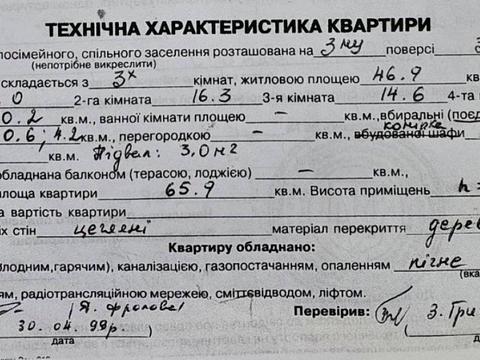 ТЕХНІЧНА ХАРАКТЕРИСТИКА КВАРТИРИ
посімейного, спільного заселення розташована на 3му поверсі
(непотрібне викреслити)
складається з 3х кімнат, житловою площею 46.9 кв
0 2-га кімната 16.3 3-я кімната 14.6 4-та к
0.2 кв.м., ванної кімнати площею — кв.м.,вбиральні (поєд
комірка
0.6; 4.2 кв.м., перегородкою — кв.м., вбудованої шафи
кв.м. Підвал: 3,0 м2
обладнана балконом (терасою, лоджією) — кв.м.
площа квартири 65.9 кв.м. Висота приміщень h=
а вартість квартири
іх стін цегляні матеріал перекриття дерев
Квартиру обладнано:
олодним,гарячим), каналізацією, газопостачанням, опаленням пічне
(вка
ям, радіотрансляційною мережею, сміттєвідводом, ліфтом.
Я. Фролова Перевірив: З. Гри
30.04.99р.
дата дата